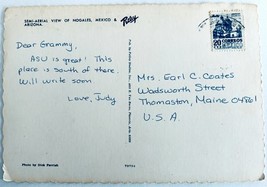 SEMI-AERIAL VIEW OF NOGALES, MEXICO &
ARIZONA.
Petley
Dear Grammy,
ASU is great! This
place is south of there.
Will write soon
Love, Judy
Photo by Bob Petley
CORREOS
Mrs. Earl C. Coates
Wadsworth Street
Thomaston, Maine 04861
U.S.A.